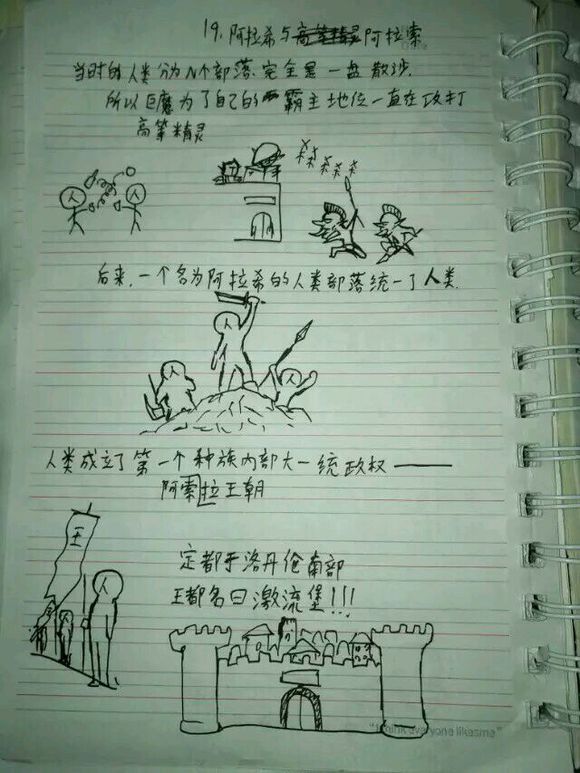 19. 阿拉希与高等精灵阿拉索
当时的人类分为N个部落,完全是一盘散沙.
所以巨魔为了自己的霸主地位一直在攻打
高等精灵
人 人
后来,一个名为阿拉希的人类部落统一了人类.
人
人 人
人类成立了第一个种族内部大一统政权——
阿索拉王朝
王
定都于洛丹伦南部
王都名曰激流堡!!!